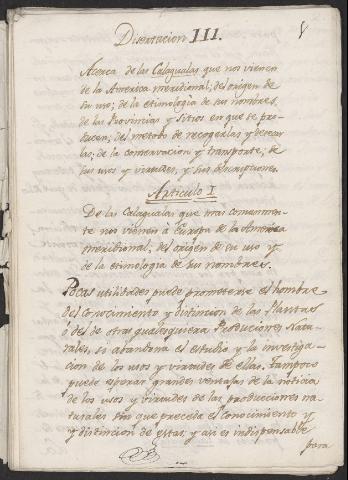 Disertacion III.
Acerca de las Calagualas que nos vienen
de la America meridional; del origen de
su uso; de la etimologia de sus nombres;
de las Provincias y Sitios en que se pro-
ducen; del metodo de recogerlas y desecar
las; de la conservacion y transporte; de
sus usos y virtudes, y sus descripciones.
Articulo I
De las Calagualas que mas comunmen-
te nos vienen à Europa de la America
meridional; del origen de su uso y
de la etimologia de sus nombres.
Pocas utilidades puede prometerse el hombre
del conocimiento y distincion de las Plantas
ó del de otras qualesquiera Producciones Natu-
rales, si abandona el estudio y la investiga-
cion de los usos y virtudes de ellas. Tampoco
puede esperar grandes ventajas de la noticia
de los usos y virtudes de las producciones na-
turales sin que preceda el conocimiento y
y distincion de estas; y asi es indispensable
para